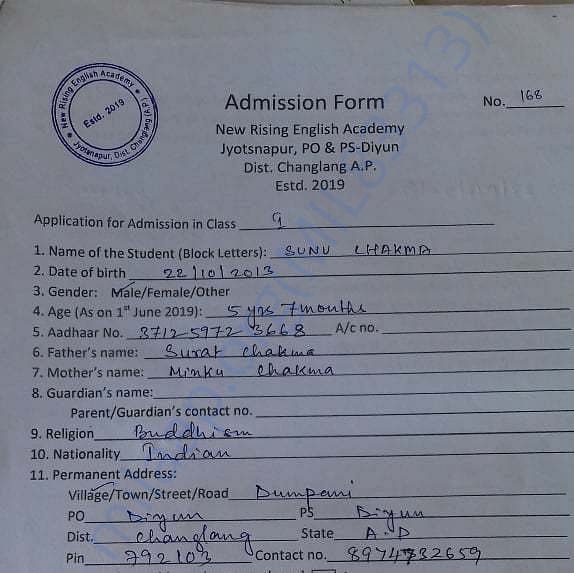 New Rising English Academy
Estd. 2019
Jyotsnapur, Dist. Changlang (A.P.)
Admission Form
No. 168
New Rising English Academy
Jyotsnapur, PO & PS-Diyun
Dist. Changlang A.P.
Estd. 2019
Application for Admission in Class 9
1. Name of the Student (Block Letters): SUNU CHAKMA
2. Date of birth 22/10/2013
3. Gender: Male/Female/Other
4. Age (As on 1st June 2019): 5 yrs 7 months
5. Aadhaar No. 3712 5972 3668 A/c no.
6. Father's name: Surat Chakma
7. Mother's name: Minku Chakma
8. Guardian's name:
Parent/Guardian's contact no.
9. Religion Buddhism
10. Nationality Indian
11. Permanent Address:
Village/Town/Street/Road Dumpani
PO Diyun PS Diyun
Dist. Changlang State A.P
Pin 792103 Contact no. 8974732659